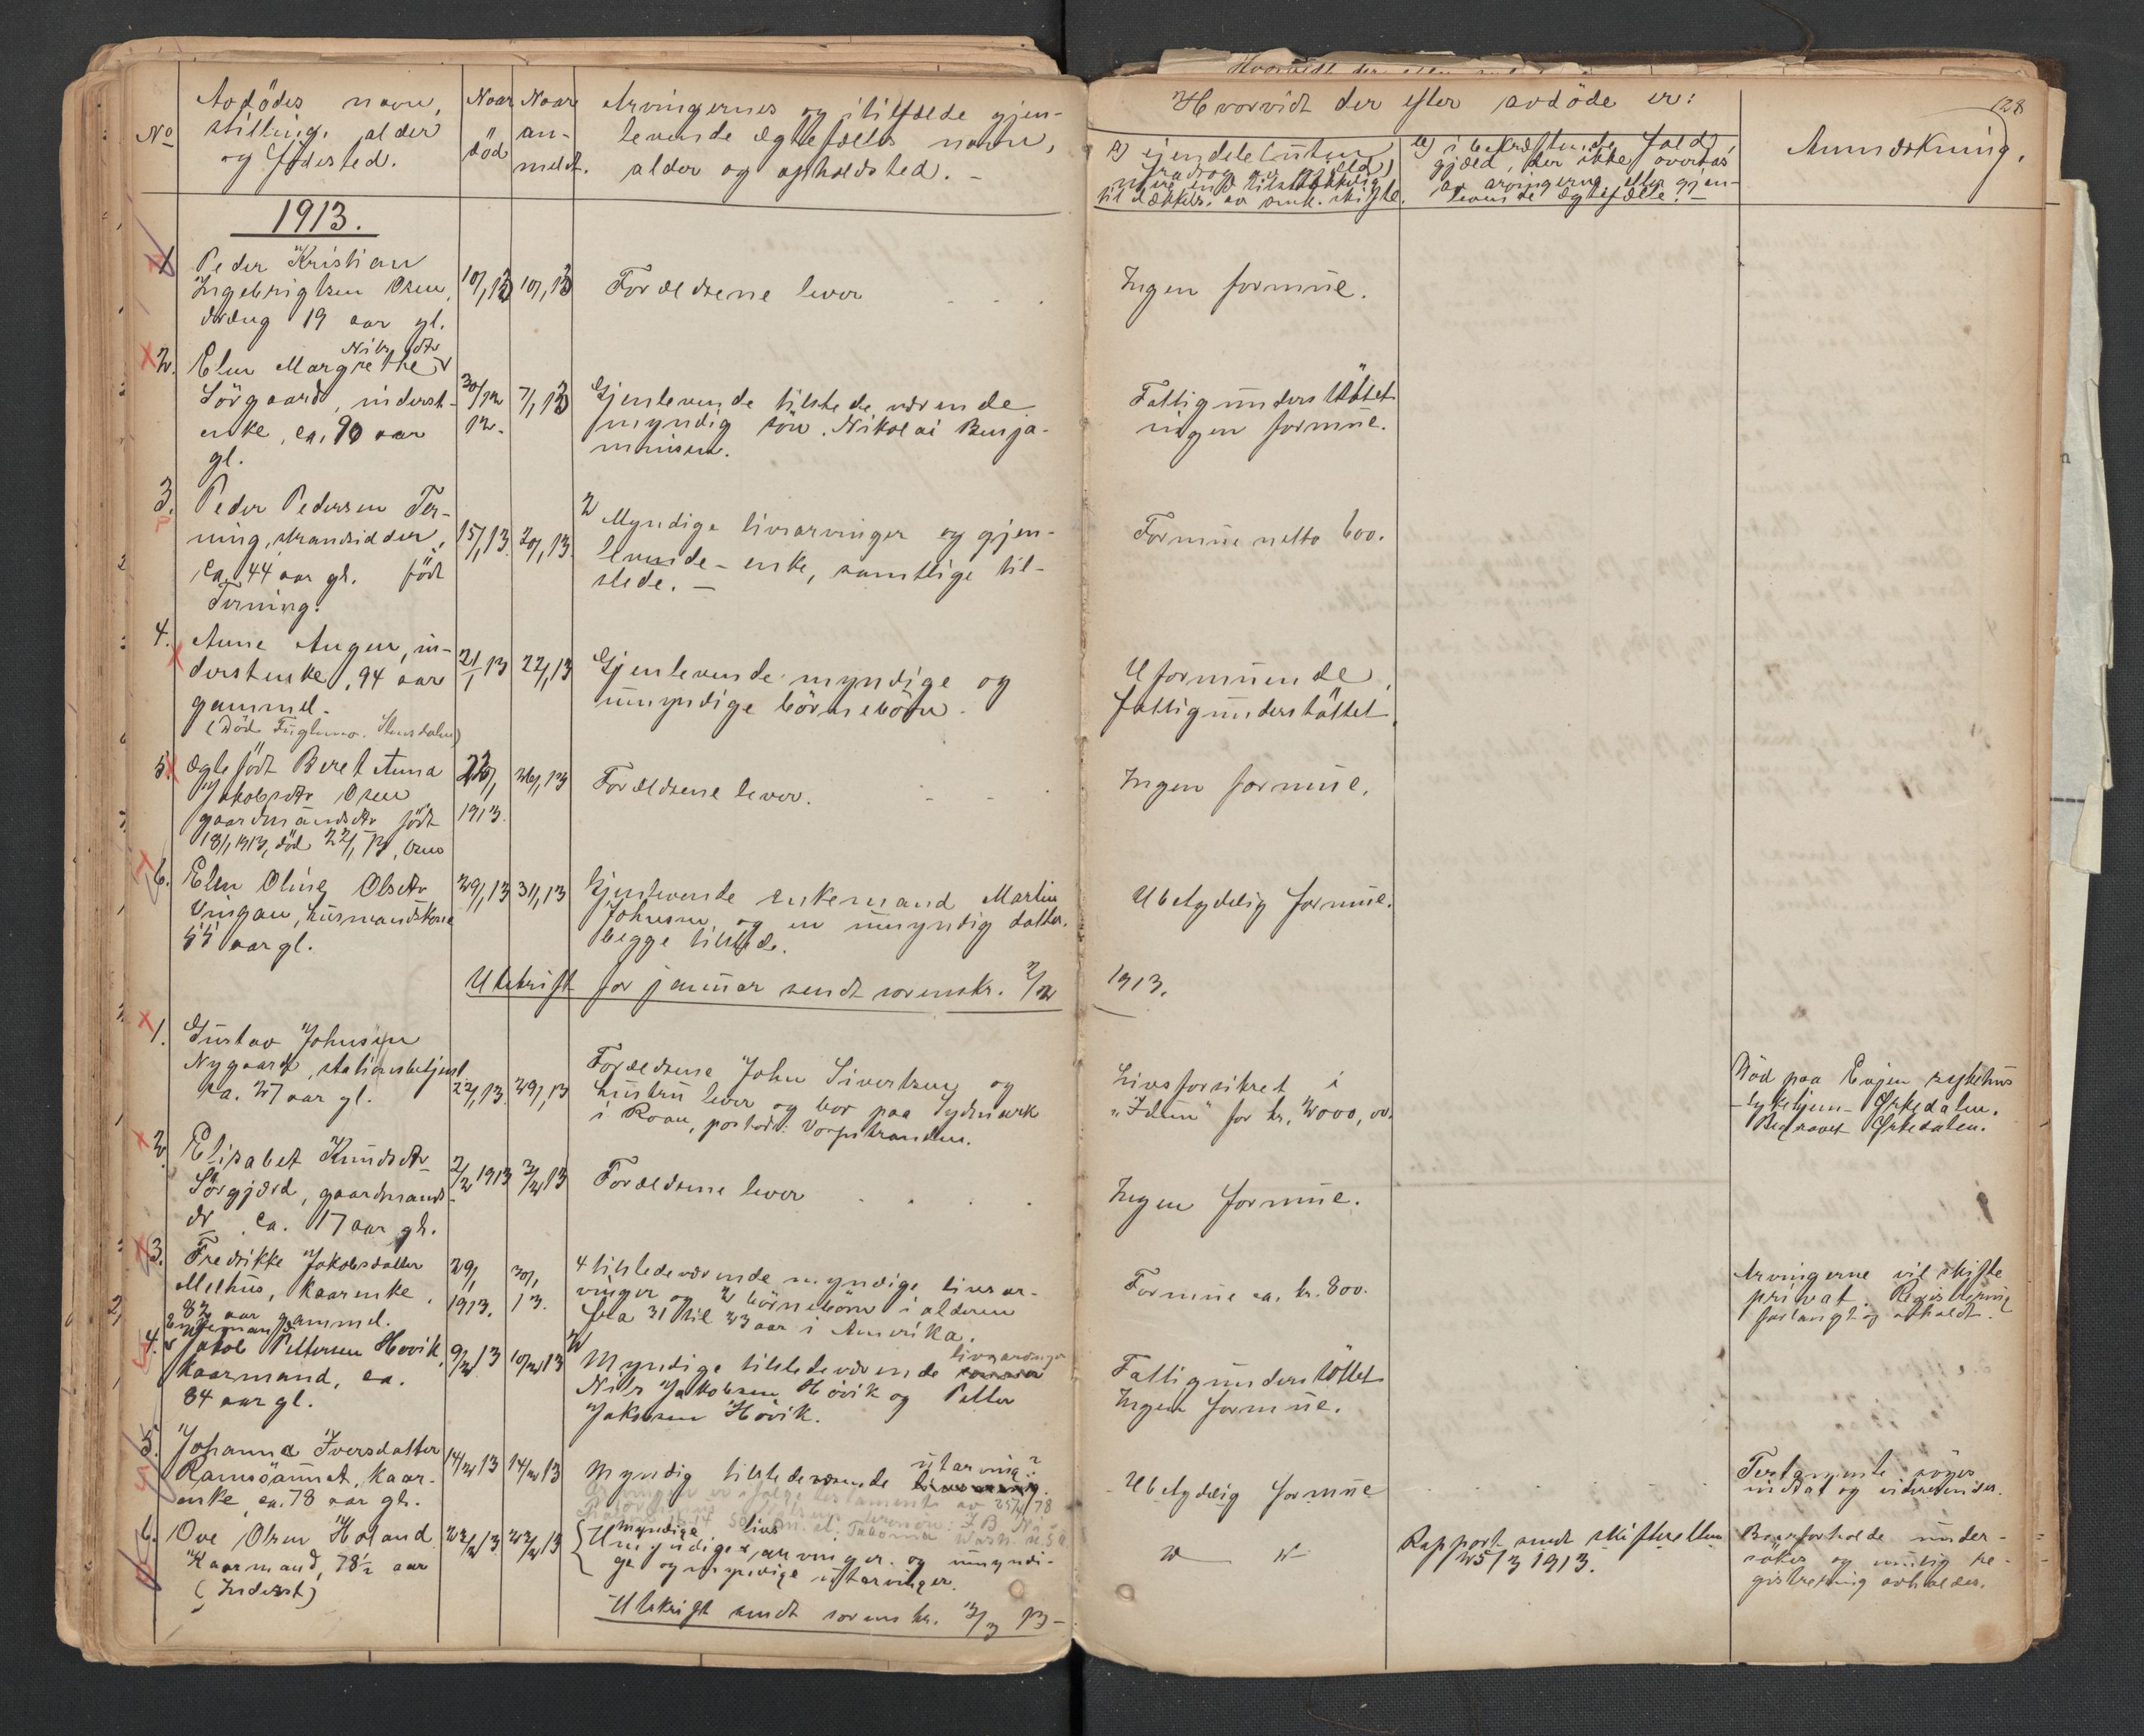 No
Avdödes navn,
stilling, alder
og födested.
Naar
död
Naar
an-
meldt.
Arvingernes og i tilfælde gjen-
levende ægtefælles navn,
alder og opholdsted. -
Hvorvidt der efter avdöde er:
a) eiendele (uten
fradrag av gjæld)
mere end tilstrækkelig
til dækkelse av omk. skifte.
b) i bekræftende fald
gjæld, der ikke overtas
av arvingerne eller gjen-
levende ægtefælle. -
Anmerkning.
128
1913.
1
Peder Kristian
Ingebrigtsen Osen,
dræng 19 aar gl.
10/1 13
10/1 13
Forældrene lever
Ingen formue.
2.
Nilsdtr
Elen Margrethe
Sörgaard, inderst-
enke, ca. 90 aar
gl.
30/12
12.
7/1 13
Gjenlevende tilstedeværende
myndig sön. Nikolai Benja-
minsen.
Fattigunderstöttet
ingen formue.
3.
Peder Pedersen Ter-
ning, strandsidder,
ca. 44 aar gl. födt
Terning.
15/1 13.
20/1 13.
2 Myndige livsarvinger og gjen-
levende - enke, samtlige til-
stede. -
Formue netto 600.
4.
Anne Angen, in-
derstenke, 94 aar
gammel.
(Död Fuglemo. Stensdalen)
21/1 13
22/1 13
Gjenlevende myndige og
umyndige börnebörn.
Uformuende,
fattigunderstöttet
5.
Ægtefödt Beret Anna
Jakobsdtr Osen
gaardmandsdtr födt
18/1 1913, död 22/1 13, Osen
22/1
1913.
26/1 13
Forældrene lever.
Ingen formue.
6.
Elen Oline Olsdtr
Vingan, husmandskone
55 aar gl.
29/1 13
31/1 13
Gjenlevende enkemand Martin
Johnsen og en umyndig datter.
begge tilstede.
Ubetydelig formue.
Utskrift for januar sendt sorenskr. 2/2 1913.
1.
Gustav Johnsen
Nygaard, stationsbetjent
ca. 27 aar gl.
22/1 13.
29/1 13
Forældrene John Sivertsen og
hustru lever og bor paa Sydmark
i Roan, postadr: Vorpstranden.
Livsforsikret i
"Idun" for kr. 2000,00.
Död paa Evjen sykehus
- sykehjem - Orkedalen.
Begravet Orkedalen.
2.
Elisabet Knudsdtr
Sörgjerd, gaardmands-
dtr ca. 17 aar gl.
2/2 1913
3/2 13
Forældrene lever
Ingen formue.
3.
Fredrikke Jakobsdatter
Melhus, kaarenke,
82 aar gammel.
29/1
1913.
30/1
13.
4 tilstedeværende myndige livsar-
vinger og 2 börnebörn i alderen
fra 31 til 23 aar i Amerika.
Formue ca. kr. 800.
Arvingerne vil skifte
privat. Registrering
forlangt og avholdt.
4.
enkemand
Jakob Pettersen Hovik,
kaarmand, ca.
84 aar gl.
9/2 13
10/2 13
2
Myndige tilstedeværende livsarvinger
Nils Jakobsen Hövik og Petter
Jakobsen Hövik.
Fattigunderstöttet
Ingen formue.
5.
Johanna Iversdatter
Ramsöaunet, kaar-
enke, ca. 78 aar gl.
14/2 13
14/2 13
Myndig tilstedeværende utarving?
Ubetydelig formue
Testamente söges
indtat og videresendes.
6.
Ove Olsen Holand
Kaarmand, 78½ aar
(Inderst)
22/2 13.
22/2 13
myndige livs
Umyndige arvinger og umyndi-
ge og myndige utarvinger.
Rapport sendt skifteretten
25/3 1913.
Boerforholde under-
sökes og mulig re-
gistrering avholdes.
Utskrift sendt sorenskr. 2/3 13 -